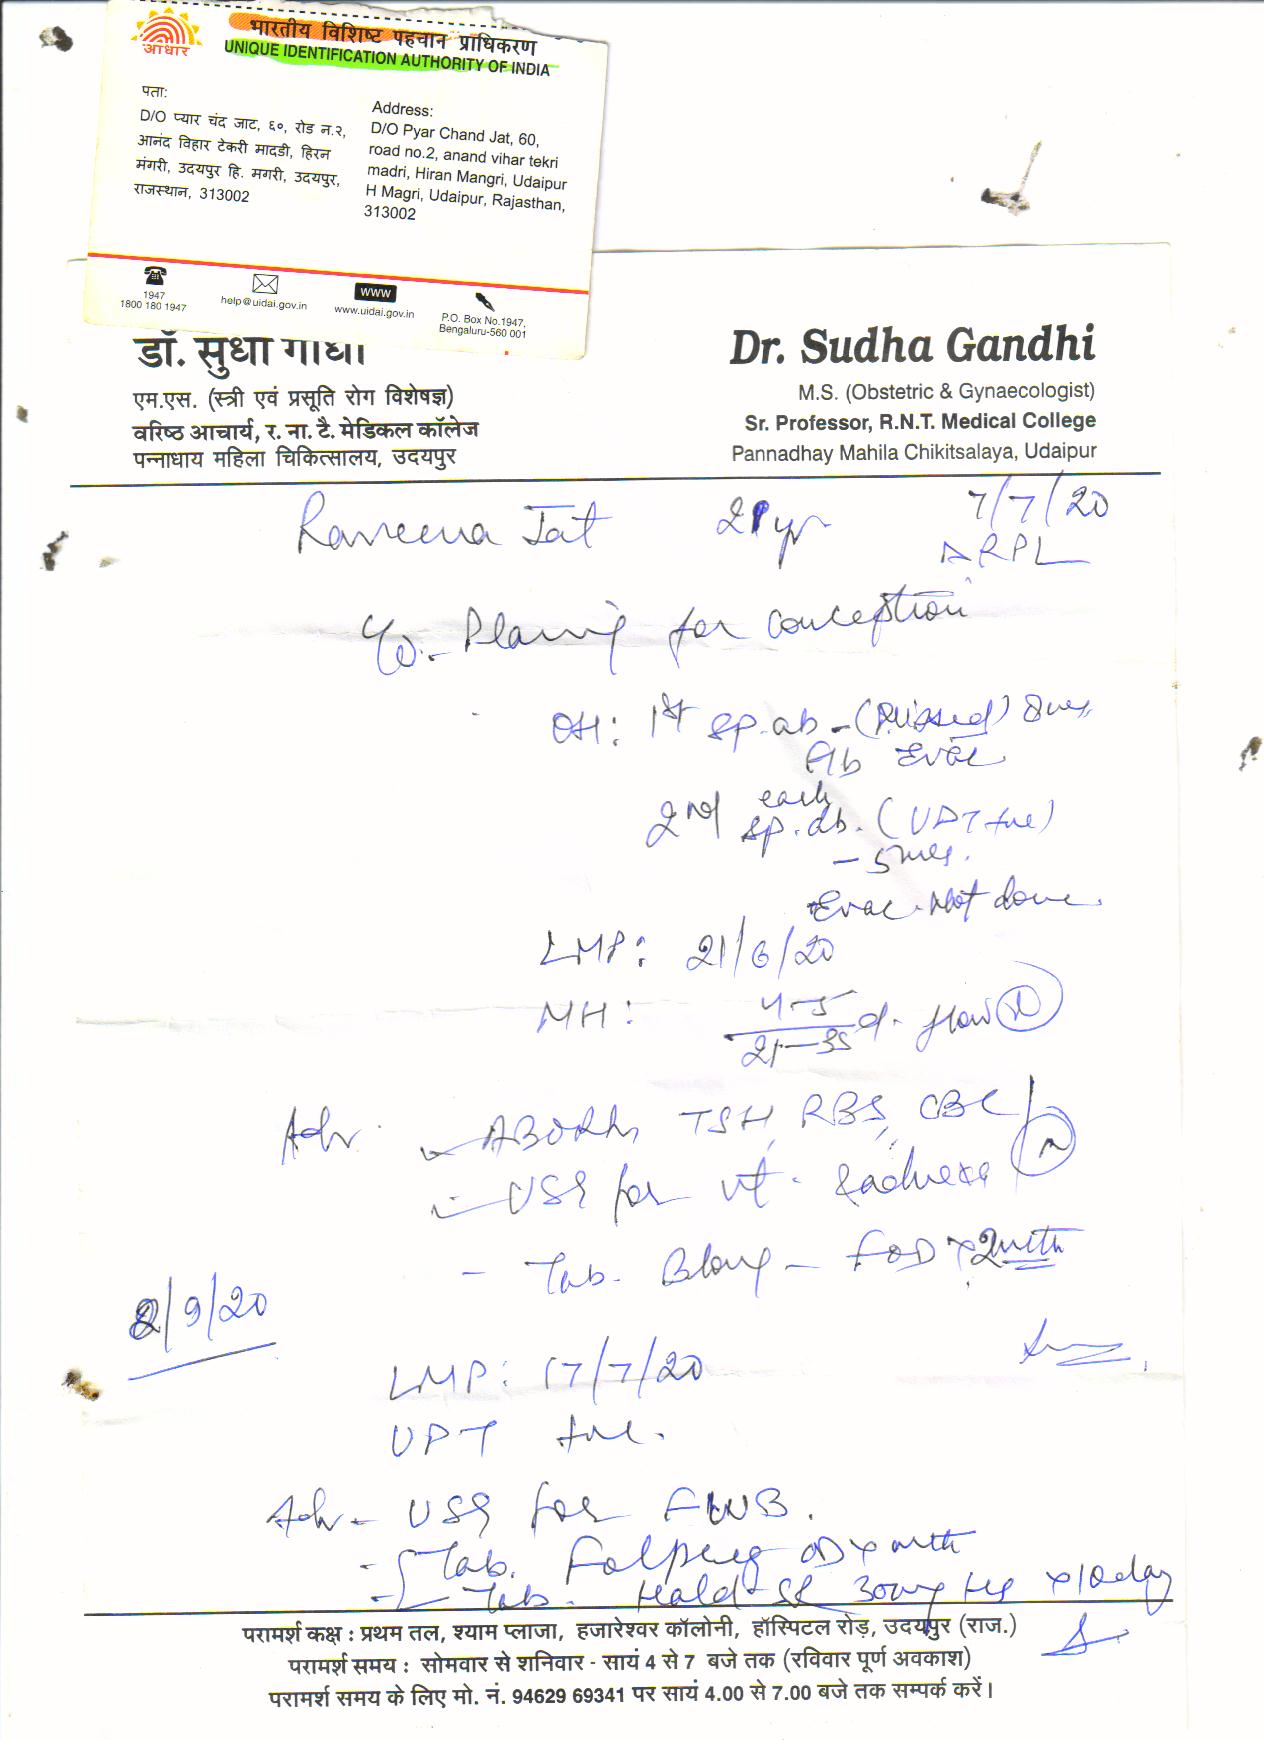 आधार
भारतीय विशिष्ट पहचान प्राधिकरण
UNIQUE IDENTIFICATION AUTHORITY OF INDIA
पता:
D/O प्यार चंद जाट, ६०, रोड न.२,
आनंद विहार टेकरी मादडी, हिरन
मंगरी, उदयपुर हि. मगरी, उदयपुर,
राजस्थान, 313002
Address:
D/O Pyar Chand Jat, 60,
road no.2, anand vihar tekri
madri, Hiran Mangri, Udaipur
H Magri, Udaipur, Rajasthan,
313002
1947
1800 180 1947
help@uidai.gov.in
www
www.uidai.gov.in
P.O. Box No.1947,
Bengaluru-560 001
डॉ. सुधा गांधी
एम.एस. (स्त्री एवं प्रसूति रोग विशेषज्ञ)
वरिष्ठ आचार्य, र. ना. टै. मेडिकल कॉलेज
पन्नाधाय महिला चिकित्सालय, उदयपुर
Dr. Sudha Gandhi
M.S. (Obstetric & Gynaecologist)
Sr. Professor, R.N.T. Medical College
Pannadhay Mahila Chikitsalaya, Udaipur
Raveena Jat 21 yr 7/7/20
RPL
Planing for conception
OH: 1st sp. ab - (Missed)
Evac
2nd early
sp. ab. (UPT +ve)
Evac. Not done.
LMP: 21/6/20
MH: 4-5
21-35 d. flow N
Adv. - ABORh, TSH, RBS, CBC
- USG for
- Tab. - OD x 2 mth
2/9/20
LMP: 17/7/20
UPT +ve.
Adv - USG for FWB.
- Tab. OD x mth
- Tab. SR 30mg HS x 10 day
परामर्श कक्ष : प्रथम तल, श्याम प्लाजा, हजारेश्वर कॉलोनी, हॉस्पिटल रोड़, उदयपुर (राज.)
परामर्श समय : सोमवार से शनिवार - सायं 4 से 7 बजे तक (रविवार पूर्ण अवकाश)
परामर्श समय के लिए मो. नं. 94629 69341 पर सायं 4.00 से 7.00 बजे तक सम्पर्क करें।